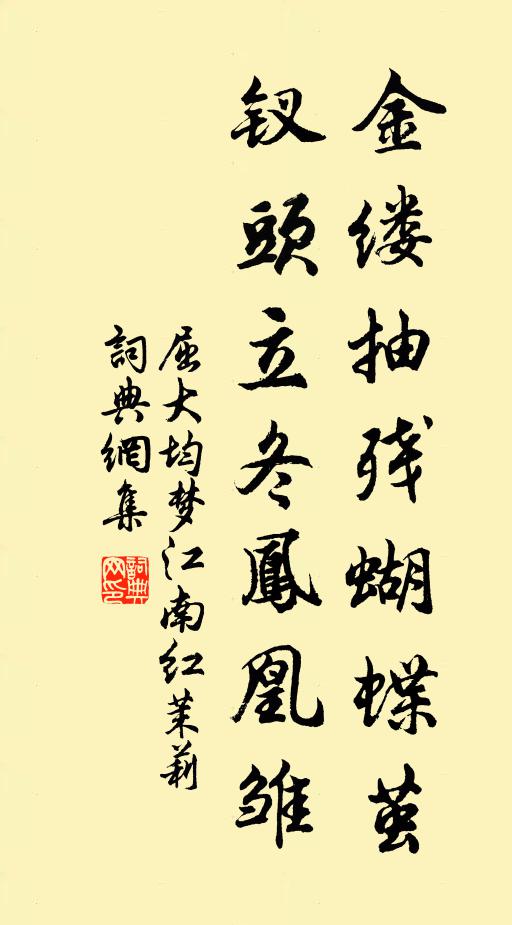 金缕抽残蝴蝶茧
钗頭立冬鳳凰雏
屈大均梦江南红茉莉
詞典網集
詞典网印